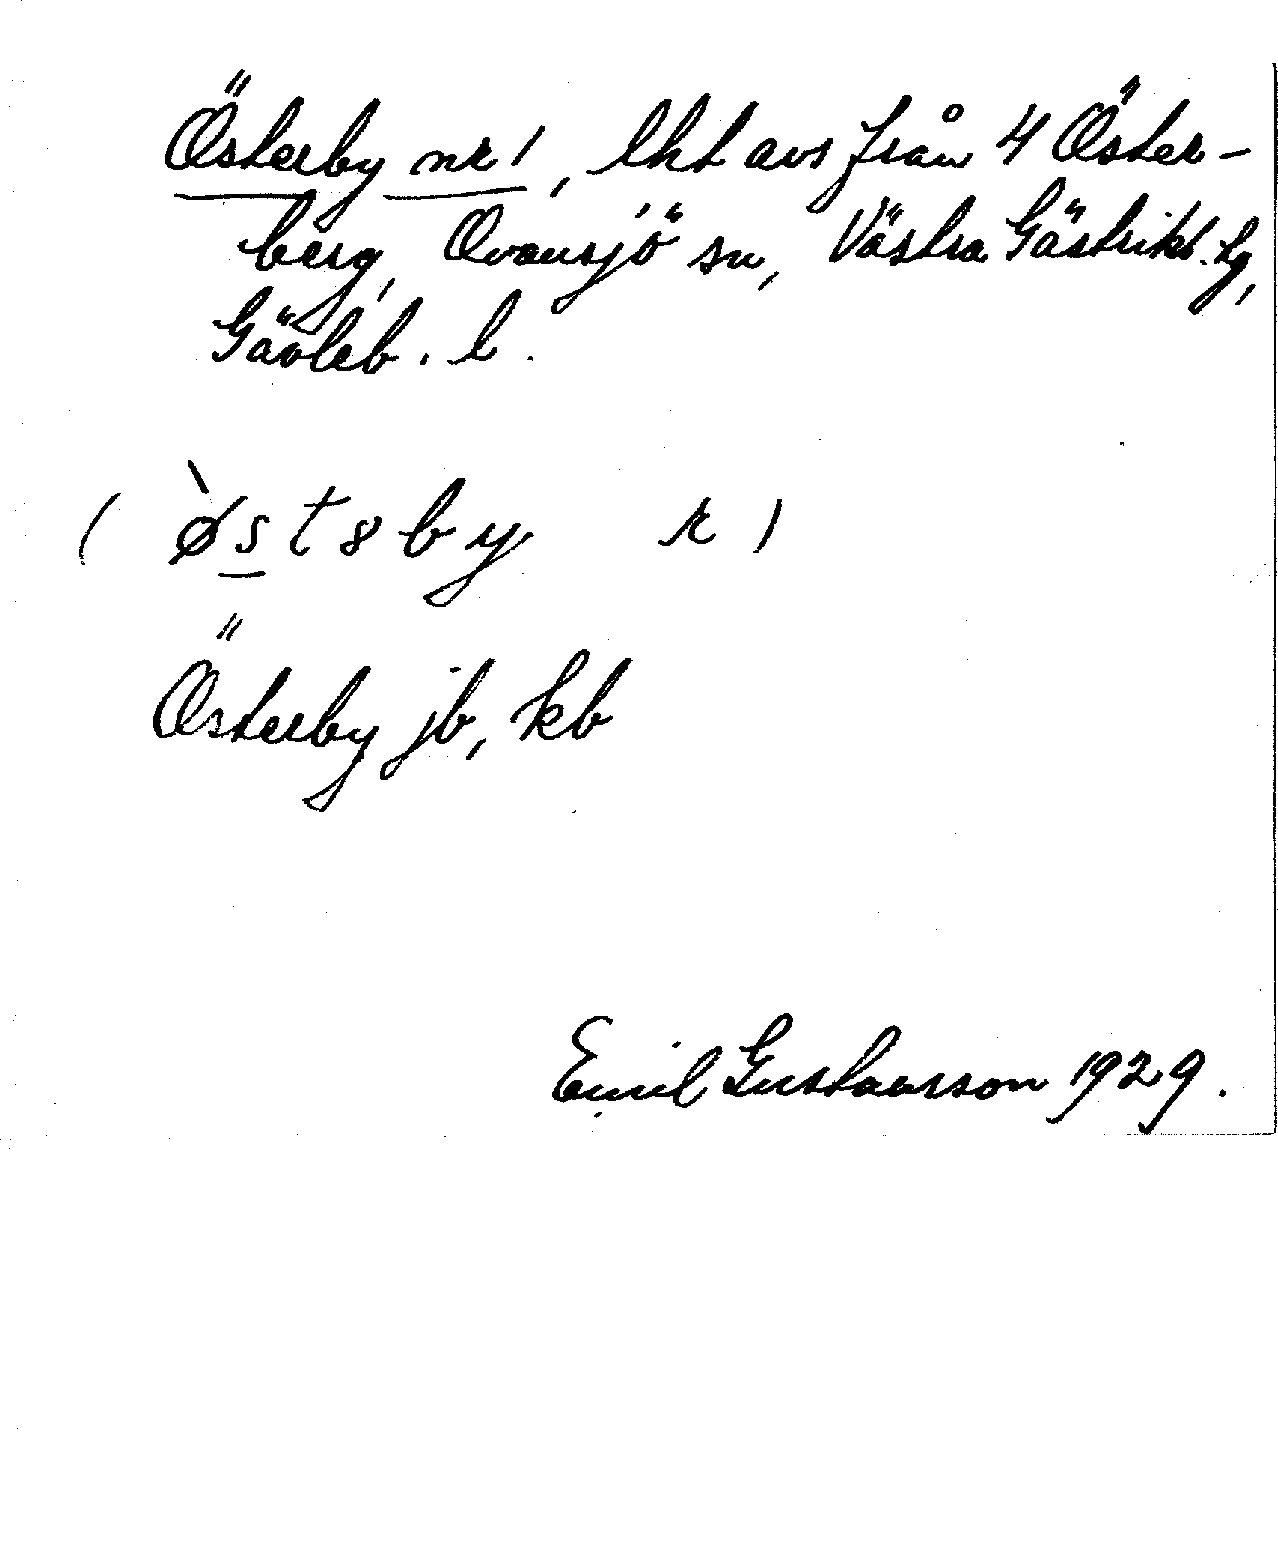 Österby nr 1, lht avs från 4 Öster-
berg, Ovansjö sn, Västra Gästrikl. tg,
Gävleb. l.
( ø̀stəby r )
Österby jb, kb
Emil Gustavsson 1929.